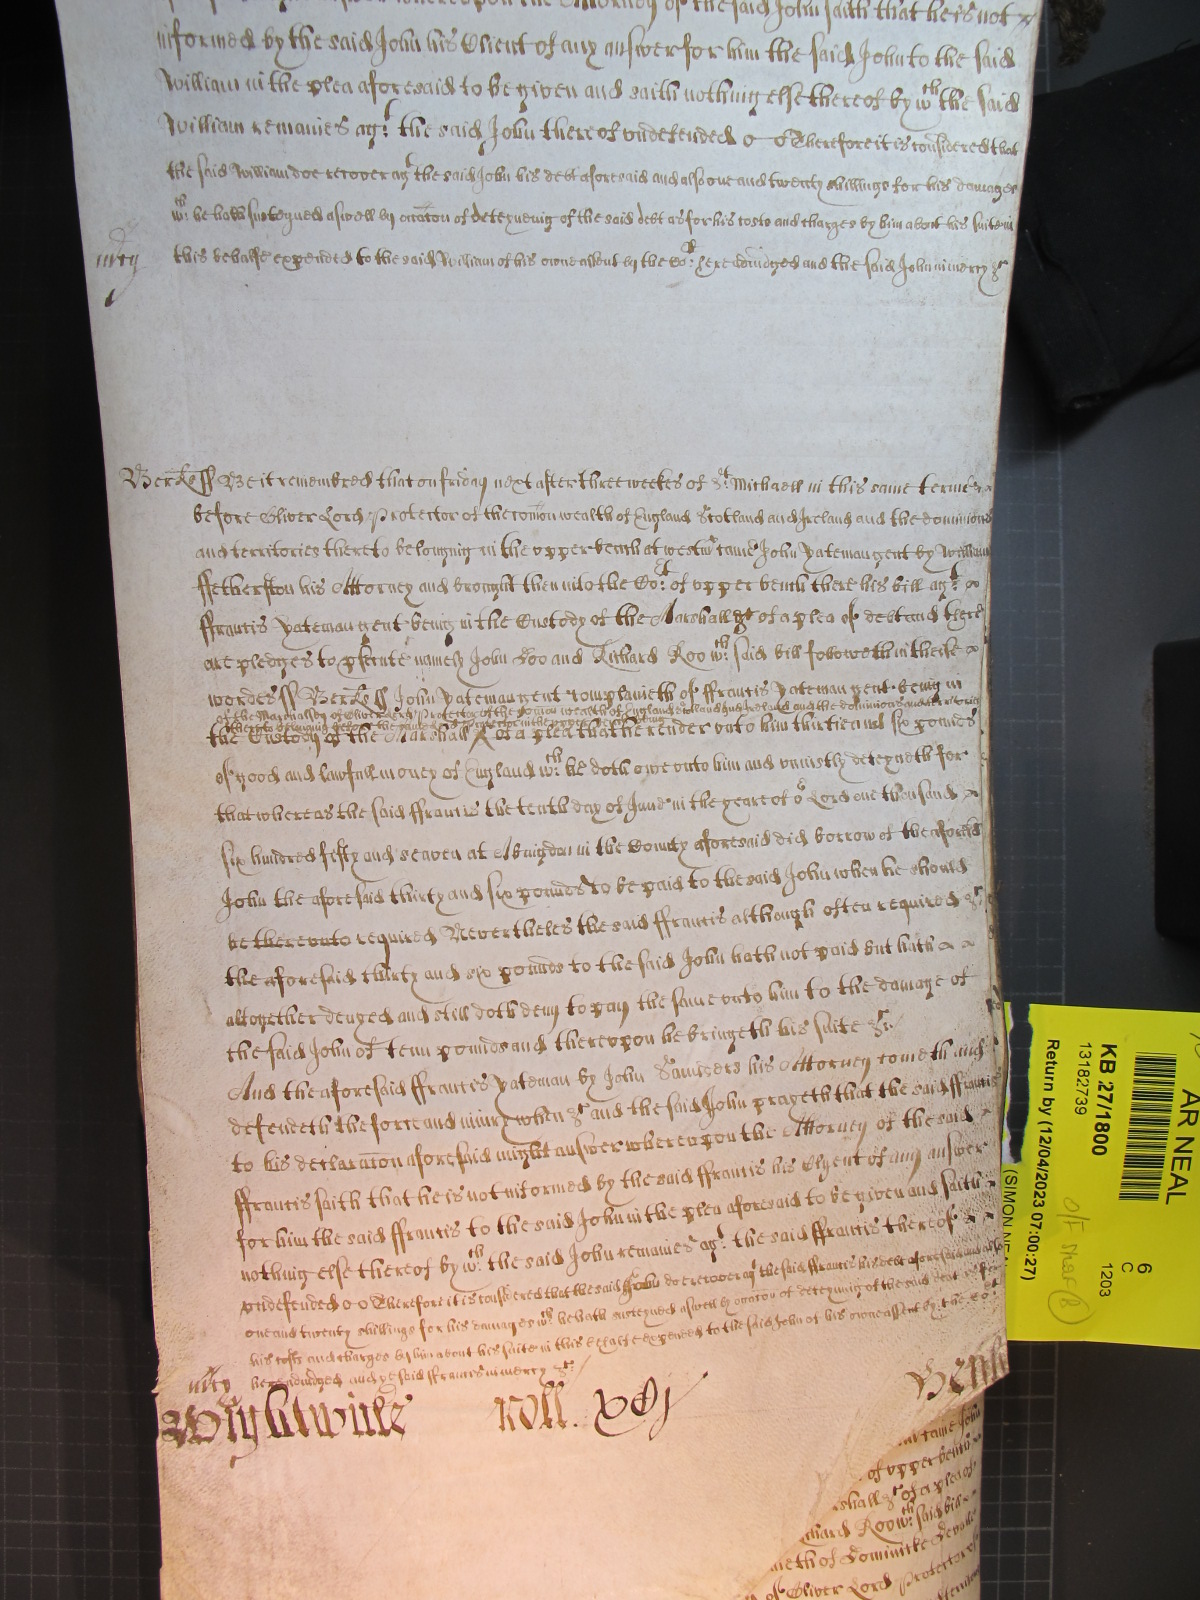 whereupon the Attorney of the said John saith that he is not
informed by the said John his Client of any answer for him the said John to the said
William in the plea aforesaid to be given and saith nothing else thereof by wch the said
William remaines agt the said John thereof undefended Therefore it is considered that
the said William doe recover agt the said John his debt aforesaid and also one and twenty shillings for his damages
wch he hath susteyned aswell by occacon of deteyneing of the said debt as for his costs and charges by him about his suite in
mercy this behalfe expended to the said William of his owne assent by the Cort here adiudged and the said John in mercy &c
Berks ss Be it remembred that on friday next after three weekes of St Michaell in this same terme
before Oliver Lord Protector of the comon wealth of England Scotland and Ireland and the dominions
and territories thereto belonging in the upper bench at westmr came John Pateman gent by William
ffetherston his Attorney and brought then into the Cort of upper bench there his bill agt
ffrancis Pateman gent being in the Custody of the Marshall &c of a plea of debt and there
are pledges to psecute namely John Doo and Richard Roo wch said bill followeth in theise
wordes ss Berks ss John Pateman gent complaineth of ffrancis Pateman gent being in
of the Marshalsey of Oliver Lord Protector of the comon wealth of England Scotland and Ireland and the dominions and territories
thereto belonging before the said Lord Protector in the upper bench being
the Custody of the Marshall of a plea that he render unto him thirtie and six pounds
of good and lawfull money of England wch he doth owe unto him and uniustly deteyneth for
that whereas the said ffrancis the tenth day of June in the yeare of or Lord one thousand
six hundred fifty and seaven at Abingdon in the County aforesaid did borrow of the aforesaid
John the aforesaid thirty and six pounds to be paid to the said John when he should
be thereunto required Nevertheles the said ffrancis although often required &c
the aforesaid thirty and six pounds to the said John hath not paid but hath
altogether denyed and still doth deny to pay the same unto him to the damage of
the said John of tenn pounds and thereupon he bringeth his suite &c
And the aforesaid ffrancis Pateman by John Saunders his Attorney cometh and
defendeth the force and iniury when &c and the said John prayeth that the said ffrancis
to his declaracon aforesaid might answer whereupon the Attorney of the said
ffrancis saith that he is not informed by the said ffrancis his Clyent of any answer
for him the said ffrancis to the said John in the plea aforesaid to be given and saith
nothing else thereof by wch the said John remaines agt the said ffrancis thereof
undefended Therefore it is considered that the said John doe recover agt the said ffrancis his debt aforesaid and also
one and twenty shillings for his damages wch he hath susteyned aswell by occacon of deteyning of the said debt as for
his costs and charges by him about his suite in this behalfe expended to the said John of his owne assent by the Cort
mercy here adiudged and ye said ffrancis in mercy &c
Wightwicke Roll. xvj
came John
of upper bench
shall &c of a plea of
chard Roo wch said bill
neth of Dominicke
of Oliver Lord Protector of
AR NEAL
KB 27/1800
13182739
Return by (12/04/2023 07:00:27)
6
C
1203